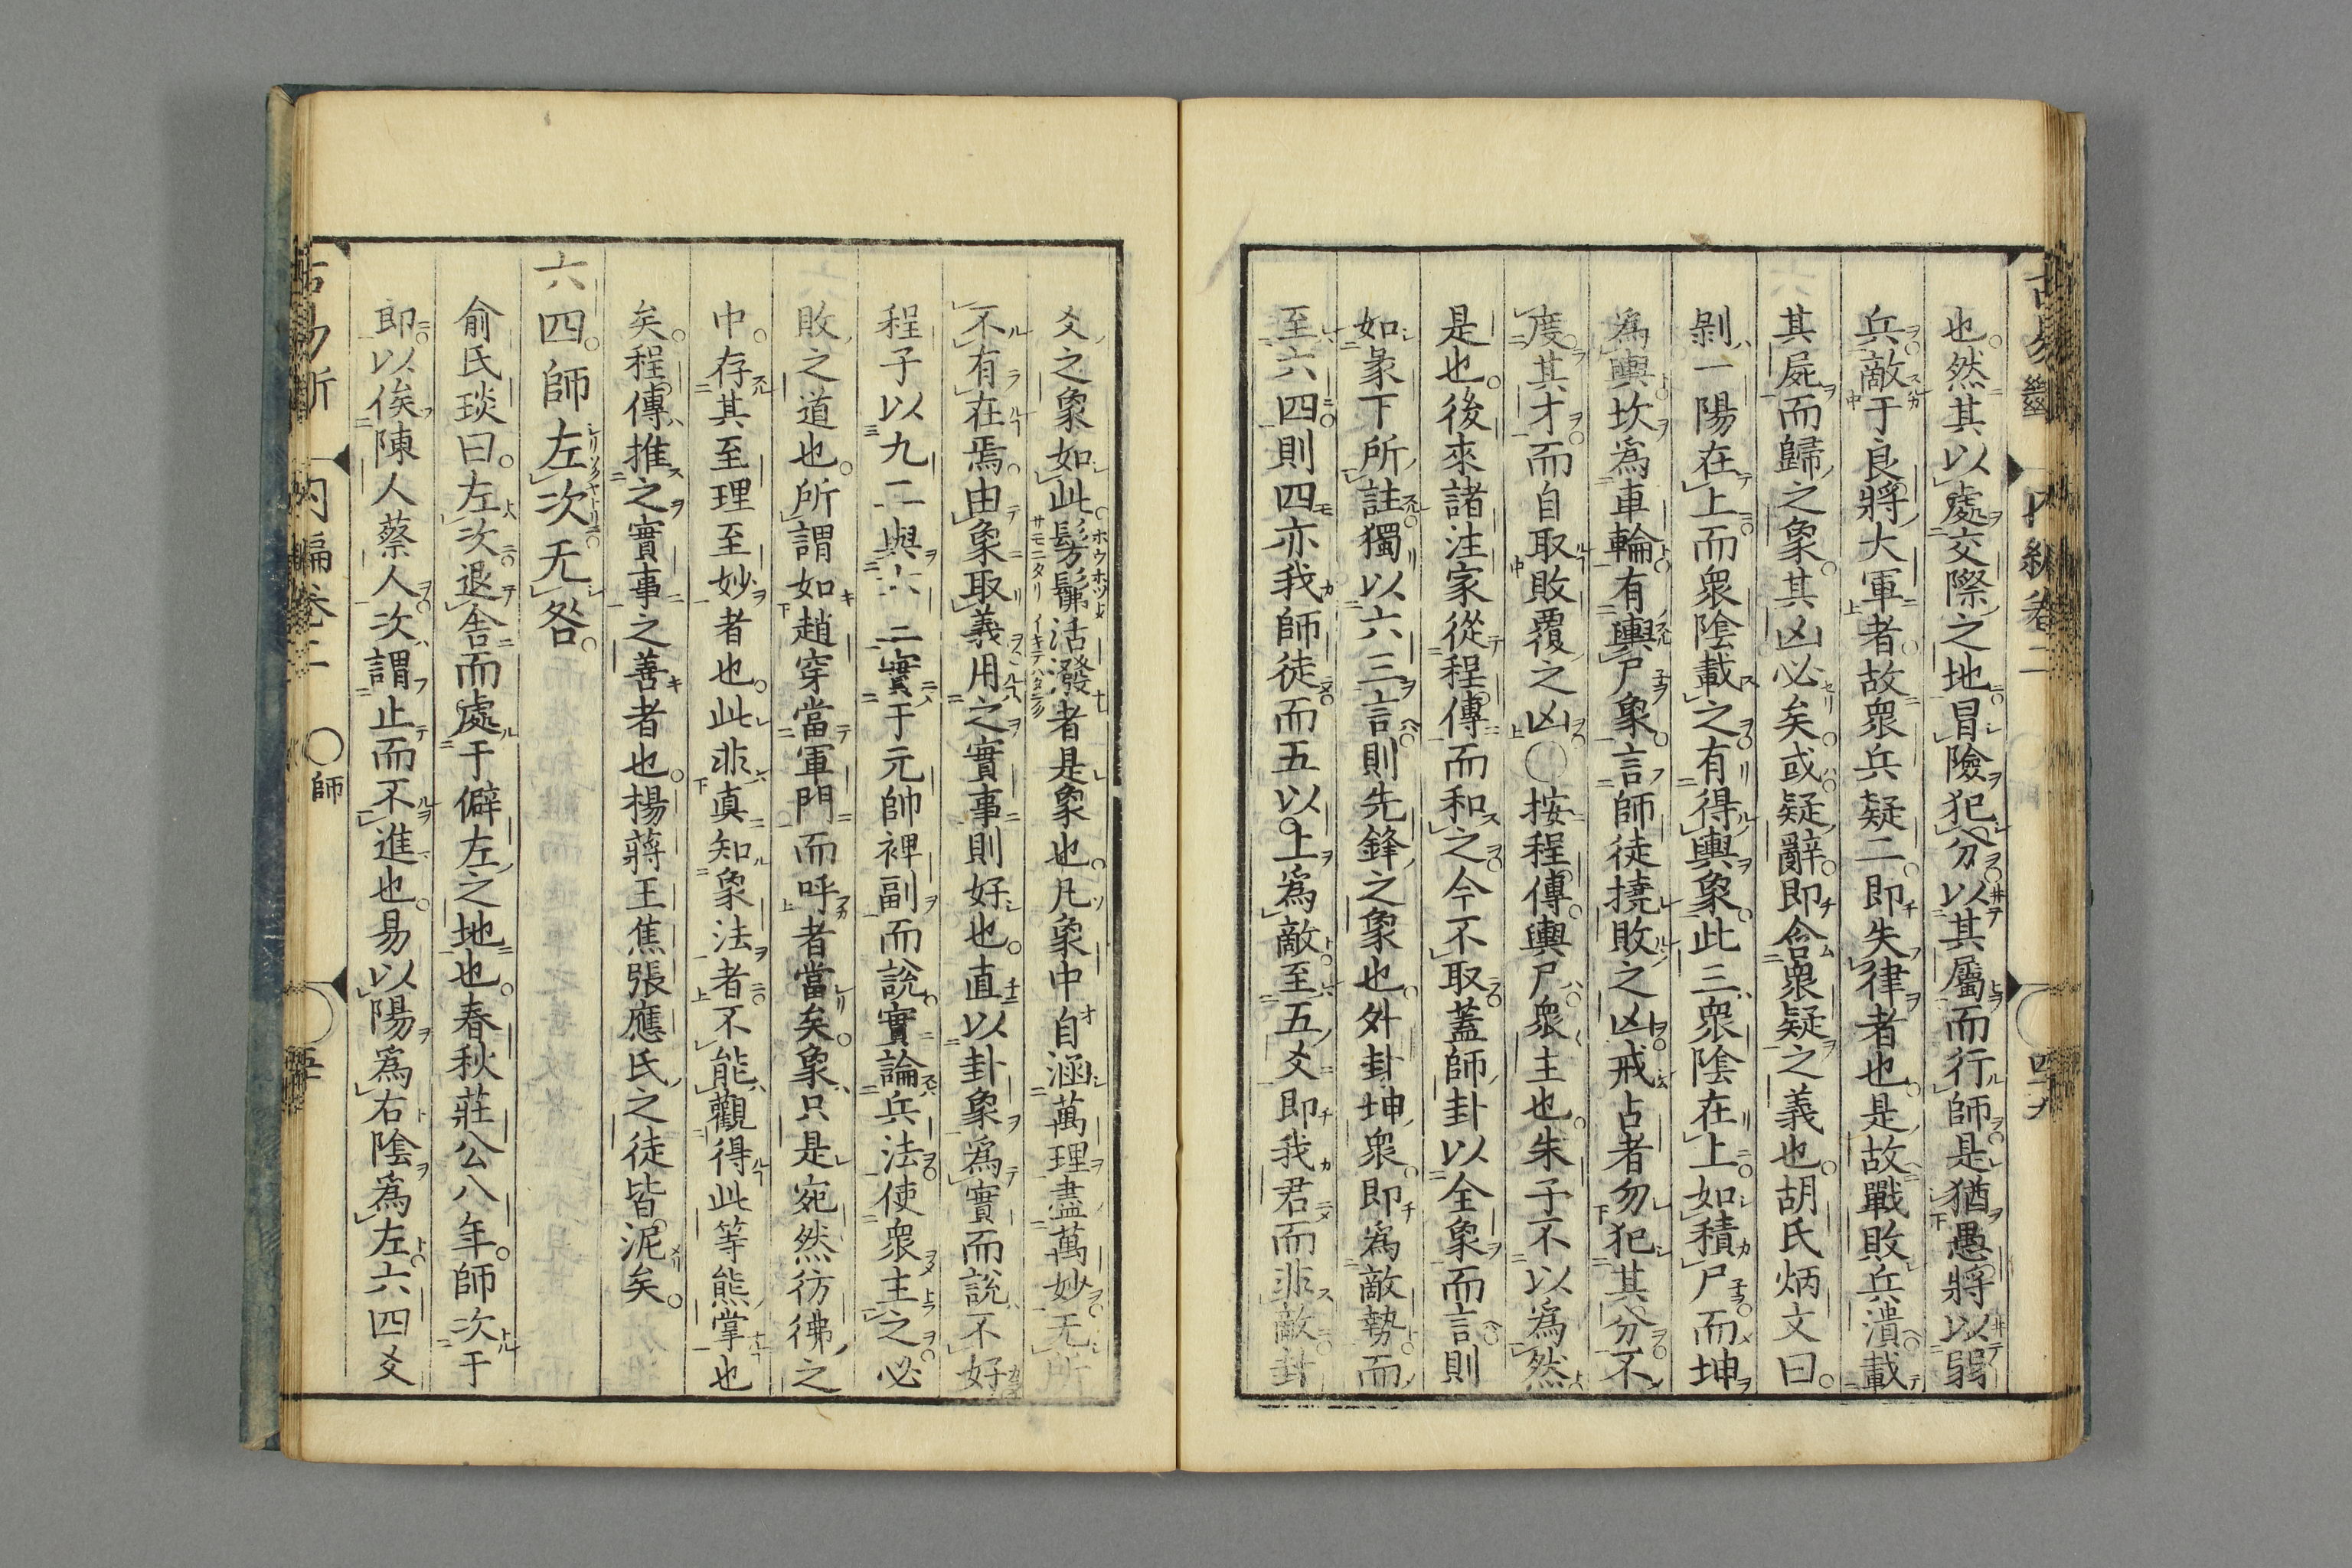 也。然其以處交際之地冒險犯分以其屬而行師是猶愚將以弱
兵敵于良將大軍者。故眾兵疑二。即失律者也。是故戰敗兵潰載
其屍而歸之象。其凶必矣。或疑辭。即含眾疑之義也。胡氏炳文曰。
剝一陽在上而眾陰載之有得輿象。此三眾陰在上。如積尸而坤
為輿坎為車輪有輿尸象。言師徒撓敗之凶戒占者勿犯其分不
度其才而自取敗覆之凶〇按程傳。輿尸眾主也。朱子不以為然
是也。後來諸注家從程傳而和之今不取蓋師卦以全象而言則
如彖下所註獨以六三言則先鋒之象也。外卦坤眾。即為敵勢而
至六四則四亦我師徒而五以上為敵至五爻即我君而非敵卦
爻之象如此。髣髴活潑者是象也。凡象中自涵萬理盡萬妙无所
不有在焉。由象取義用之實事則好也。直以卦象為實而說不好
程子以九二與六三實于元帥裨副而說實論兵法使眾主之必
敗之道也。所謂如趙穿當軍門而呼者當矣。象只是宛然彷彿之
中。存其至理至妙者也。此非真知象法者不能觀得此等熊掌也
矣。程傳推之實事之善者也。楊蔣王焦張應氏之徒皆泥矣。
六四。師左次无咎。
俞氏琰曰。左次退舍而處于僻左之地也。春秋莊公八年。師次于
即以俟陳人蔡人次謂止而不進也。易以陽為右陰為左六四爻
內編卷二 〇師